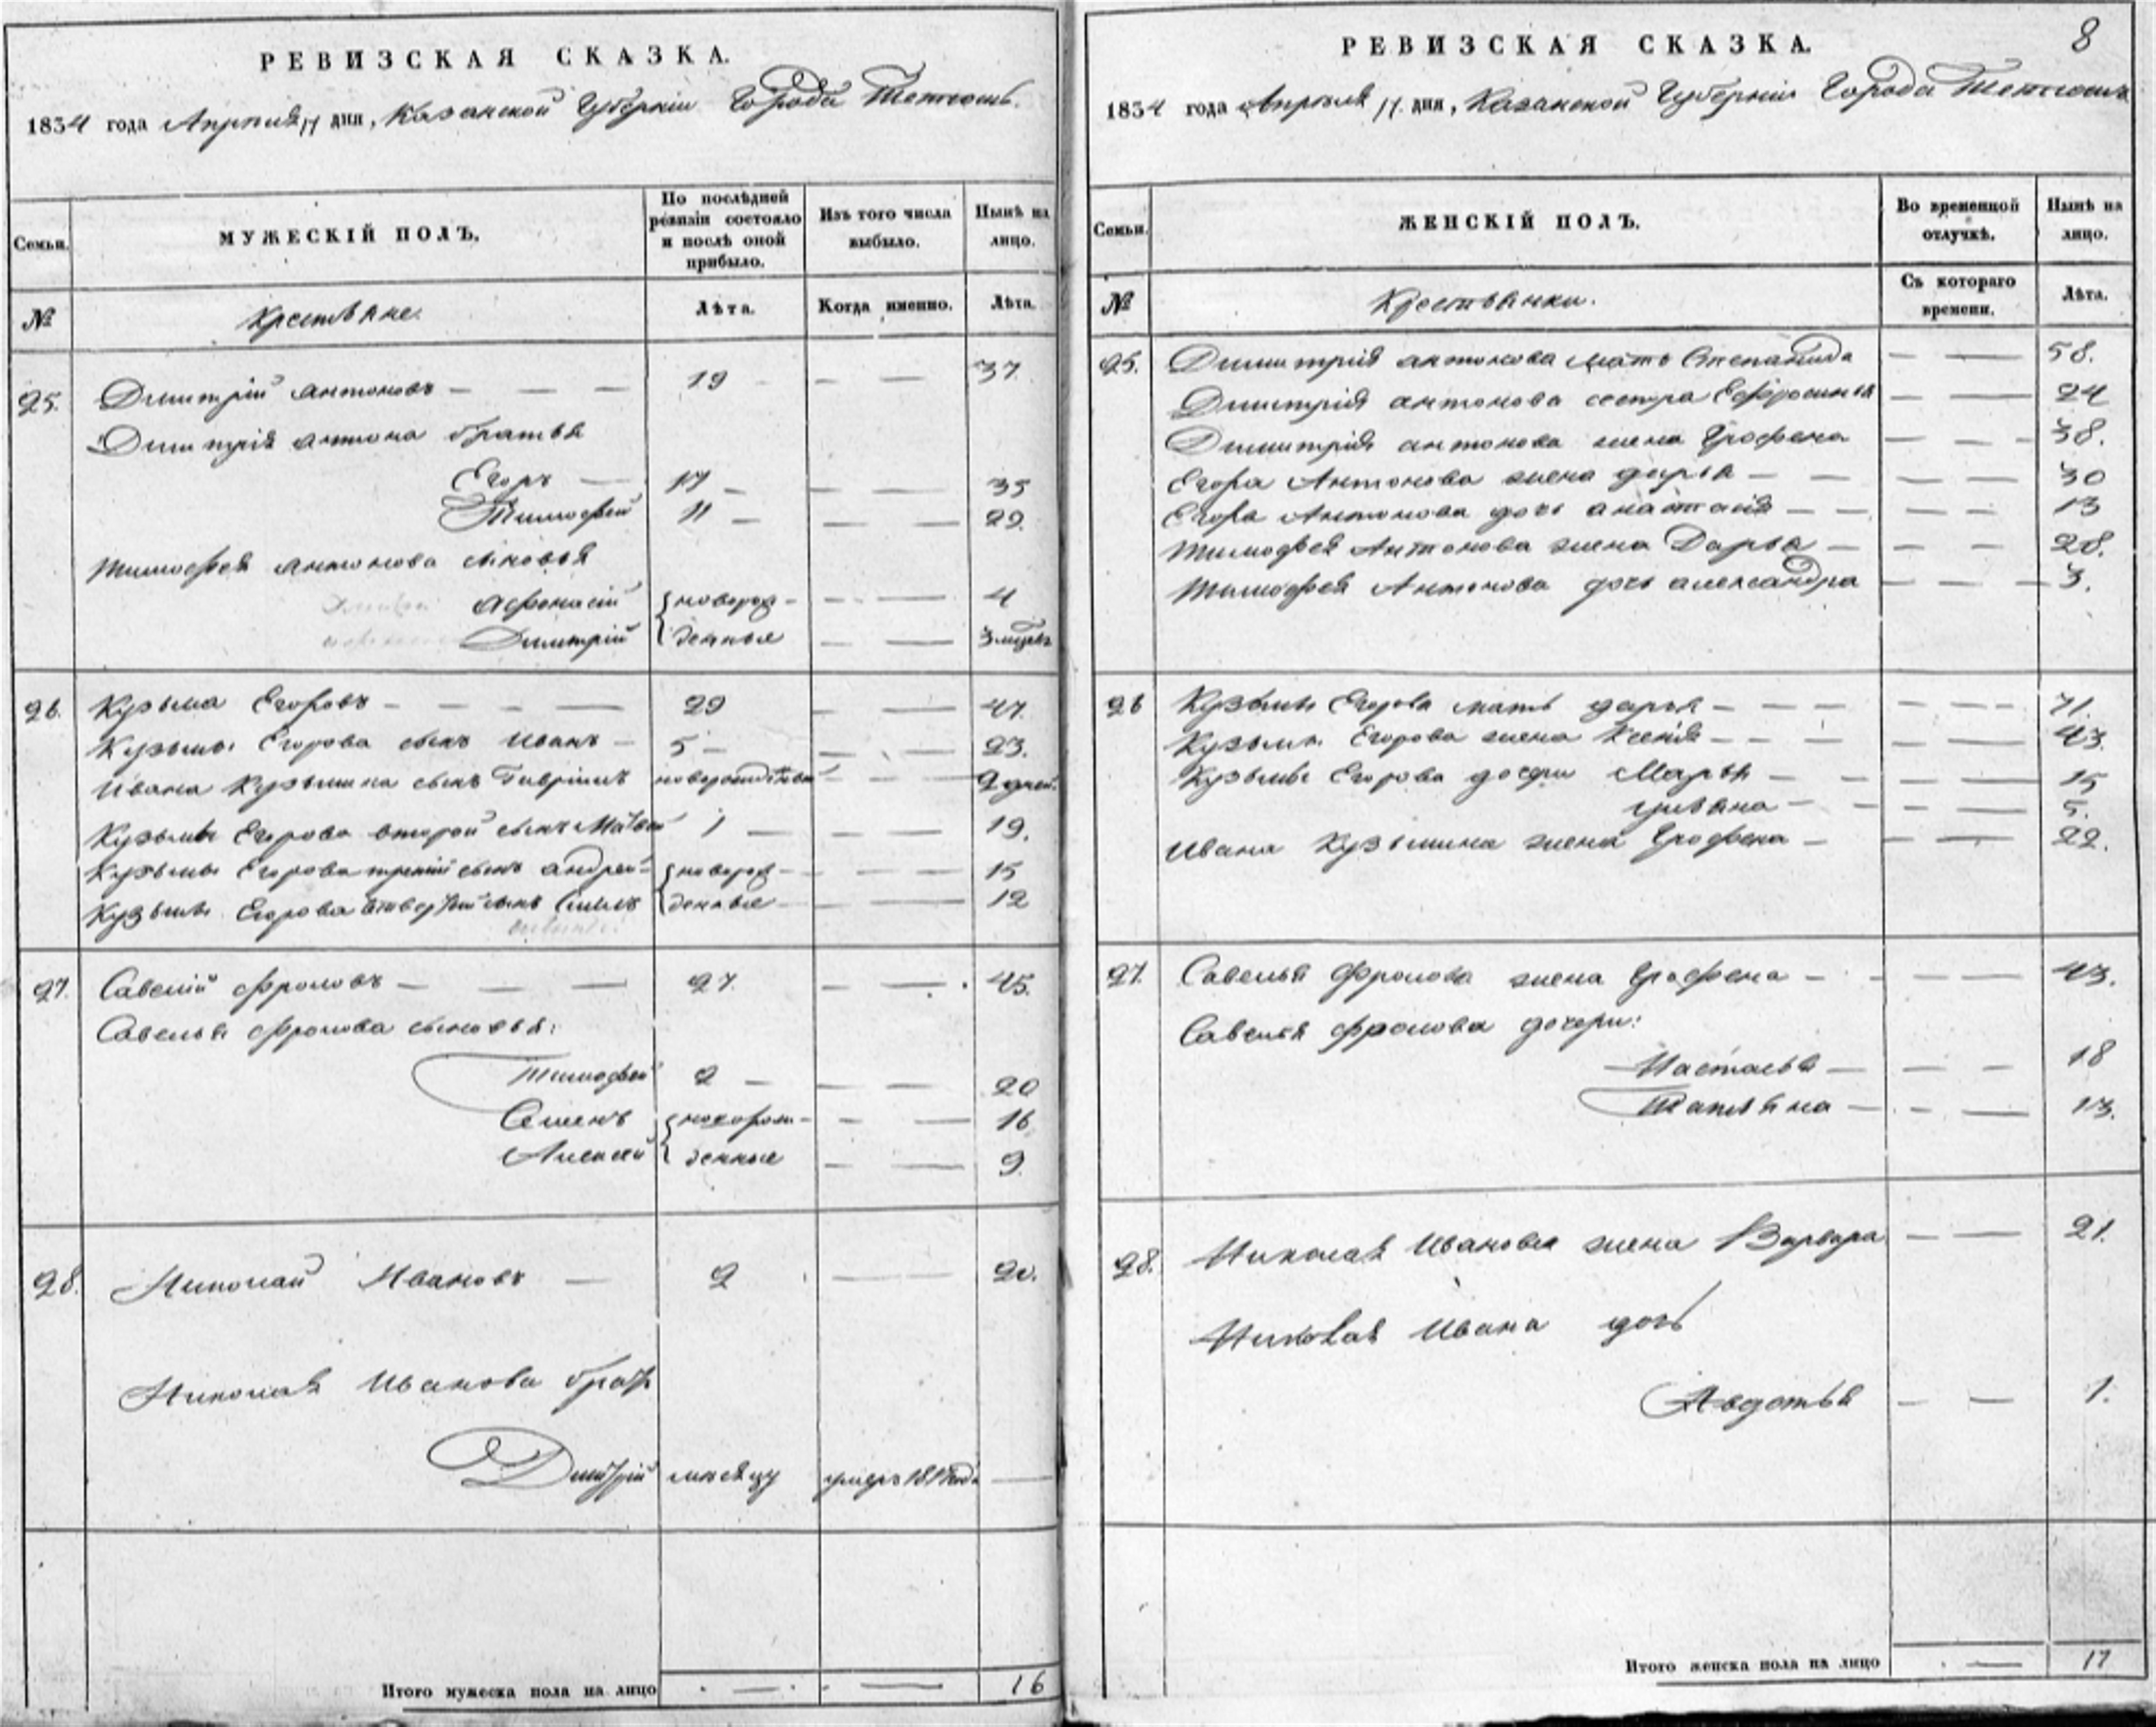 РЕВИЗСКАЯ СКАЗКА.
1834 года Апреля 17 дня, Казанской Губерніи Города Тетюшь.
Семьи.
МУЖЕСКІЙ ПОЛЪ.
По послѣдней ревизіи состояло и послѣ оной прибыло.
Изъ того числа выбыло.
Нынѣ на лицо.
№
Крестьяне.
Лѣта.
Когда именно.
Лѣта.
25. Димитрій Антоновъ — — — 19 — — 37
Димитрія Антона братья
Егоръ — 17 — — — 35
Тимофей 11 — — — 29.
Тимофея Антонова сыновья
Афонасій новорож- — — 4
Димитрій денные — — 3 мѣсев
26. Кузьма Егоровъ — — — — 29 — — 47.
Кузьмы Егорова сынъ Иванъ — 5 — — — 23.
Ивана Кузьмина сынъ Гаврiилъ новорожденный — — 2 дней.
Кузьмы Егорова второй сынъ Матвей 1 — — — 19.
Кузьмы Егорова третій сынъ андрей новорож- — — 15
Кузьмы Егорова сынъ денные — — 12
27. Савелій Фроловъ — — — 27. — — 45.
Савелья Фролова сыновья:
Тимофей 2 — — — 20
Семенъ новорож- — — 16
Алексей денные — — 9.
28. Николай Ивановъ — 2 — 20.
Николая Иванова братъ
Дмитрій месяцу умеръ —
Итого мужеска пола на лицо — — 16
8
РЕВИЗСКАЯ СКАЗКА.
1834 года Апреля 17. дня, Казанской Губерніи Города Тетюшь
Семьи.
ЖЕНСКІЙ ПОЛЪ.
Во временной отлучкѣ.
Нынѣ на лицо.
№
Крестьянки.
Съ котораго времени.
Лѣта.
25. Димитрія антонова мать Степанида — — 58.
Димитрія антонова сестра Ефросинья — — 24
Димитрія антонова жена Грофена — — 38.
Егора Антонова жена дарья — — — 30
Егора Антонова дочь анастасія — — — 13
Тимофея Антонова жена Дарья — — — 28.
Тимофея Антонова дочь александра — — 3.
26 Кузьмы Егорова мать дарья — — — — 71.
Кузьмы Егорова жена Ксенія — — — — 43.
Кузьмы Егорова дочери Марья — — — 15
— — — 5.
Ивана Кузьмина жена Грофена — — — 22.
27. Савелья Фролова жена Грофена — — — 43.
Савелья Фролова дочери:
Настасья — — — 18
Татьяна — — — 13.
28. Николая Иванова жена Варвара — — 21.
Николая Ивана дочь
Авдотья — — 1.
Итого женска пола на лицо — 17